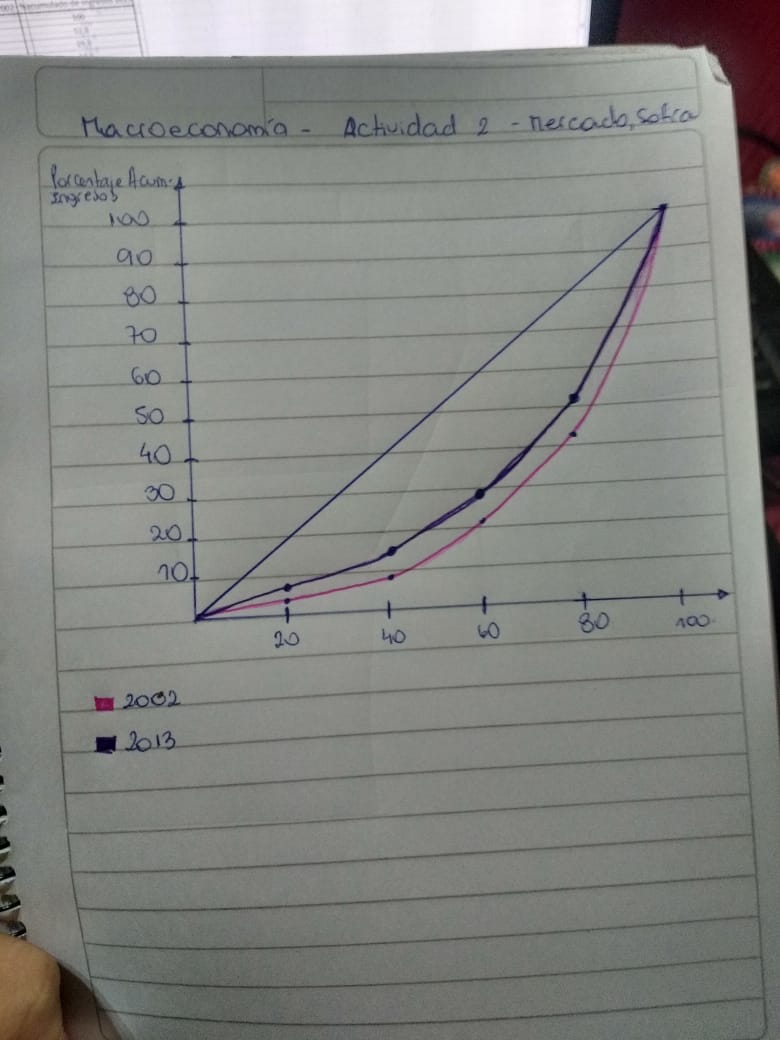 Macroeconomía - Actividad 2 - Mercado, Sofía
Porcentaje Acum.
Ingresos
100
90
80
70
60
50
40
30
20
10
20 40 60 80 100
2002
2013